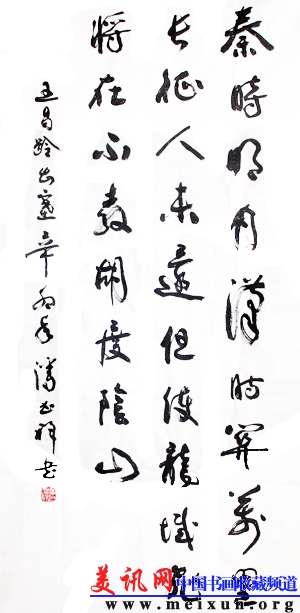 秦時明月漢時關萬里
長征人未還但使龍城飛
將在不教胡度陰山
王昌齡出塞辛卯祥書
美讯网 中国书画收藏频道
www.meixun.org